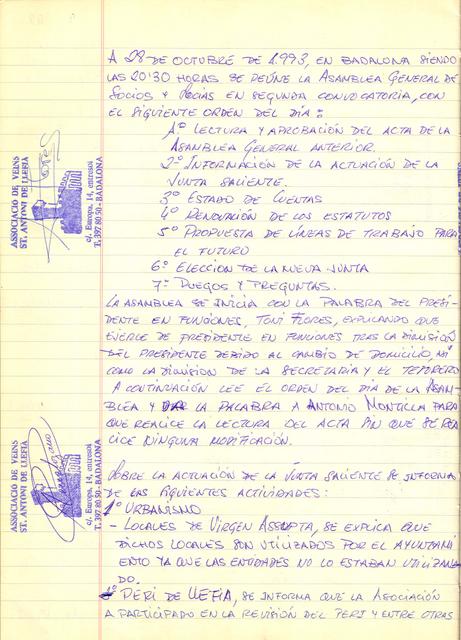 A 28 DE OCTUBRE DE 1.993, EN BADALONA SIENDO
LAS 20'30 HORAS SE REÚNE LA ASAMBLEA GENERAL DE
SOCIOS Y SOCIAS EN SEGUNDA CONVOCATORIA, CON
EL SIGUIENTE ORDEN DEL DIA:
1º LECTURA Y APROBACIÓN DEL ACTA DE LA
ASAMBLEA GENERAL ANTERIOR.
2º INFORMACIÓN DE LA ACTUACIÓN DE LA
JUNTA SALIENTE.
3º ESTADO DE CUENTAS
4º RENOVACIÓN DE LOS ESTATUTOS
5º PROPUESTA DE LÍNEAS DE TRABAJO PARA
EL FUTURO
6º ELECCION DE LA NUEVA JUNTA
7º RUEGOS Y PREGUNTAS.
LA ASAMBLEA SE INICIA CON LA PALABRA DEL PRESI-
DENTE EN FUNCIONES, TONI FLORES, EXPLICANDO QUE
EJERCE DE PRESIDENTE EN FUNCIONES TRAS LA DIMISIÓN
DEL PRESIDENTE DEBIDO AL CAMBIO DE DOMICILIO, ASÍ
COMO LA DIMISION DE LA SECRETARIA Y EL TESORERO
A CONTINUACIÓN LEE EL ORDEN DEL DIA DE LA ASAM-
BLEA Y DA LA PALABRA A ANTONIO MONTILLA PARA
QUE REALICE LA LECTURA DEL ACTA SIN QUE SE REA
LICE NINGUNA MODIFICACIÓN.
SOBRE LA ACTUACIÓN DE LA JUNTA SALIENTE SE INFORMA
DE LAS SIGUIENTES ACTIVIDADES:
1º URBANISMO
- LOCALES DE VIRGEN ASSUMPTA, SE EXPLICA QUE
DICHOS LOCALES SON UTILIZADOS POR EL AYUNTAMI
ENTO YA QUE LAS ENTIDADES NO LO ESTABAN UTILIZAN
DO.
PERI DE LLEFIA, SE INFORMA QUE LA ASOCIACIÓN
A PARTICIPADO EN LA REVISIÓN DEL PERI Y ENTRE OTRAS
ASSOCIACIO DE VEINS
ST. ANTONI DE LLEFIA
c/. Europa, 14, entresol
T. 397 80 50 - BADALONA
ASSOCIACIO DE VEINS
ST. ANTONI DE LLEFIA
c/. Europa, 14, entresol
T. 397 80 50 - BADALONA